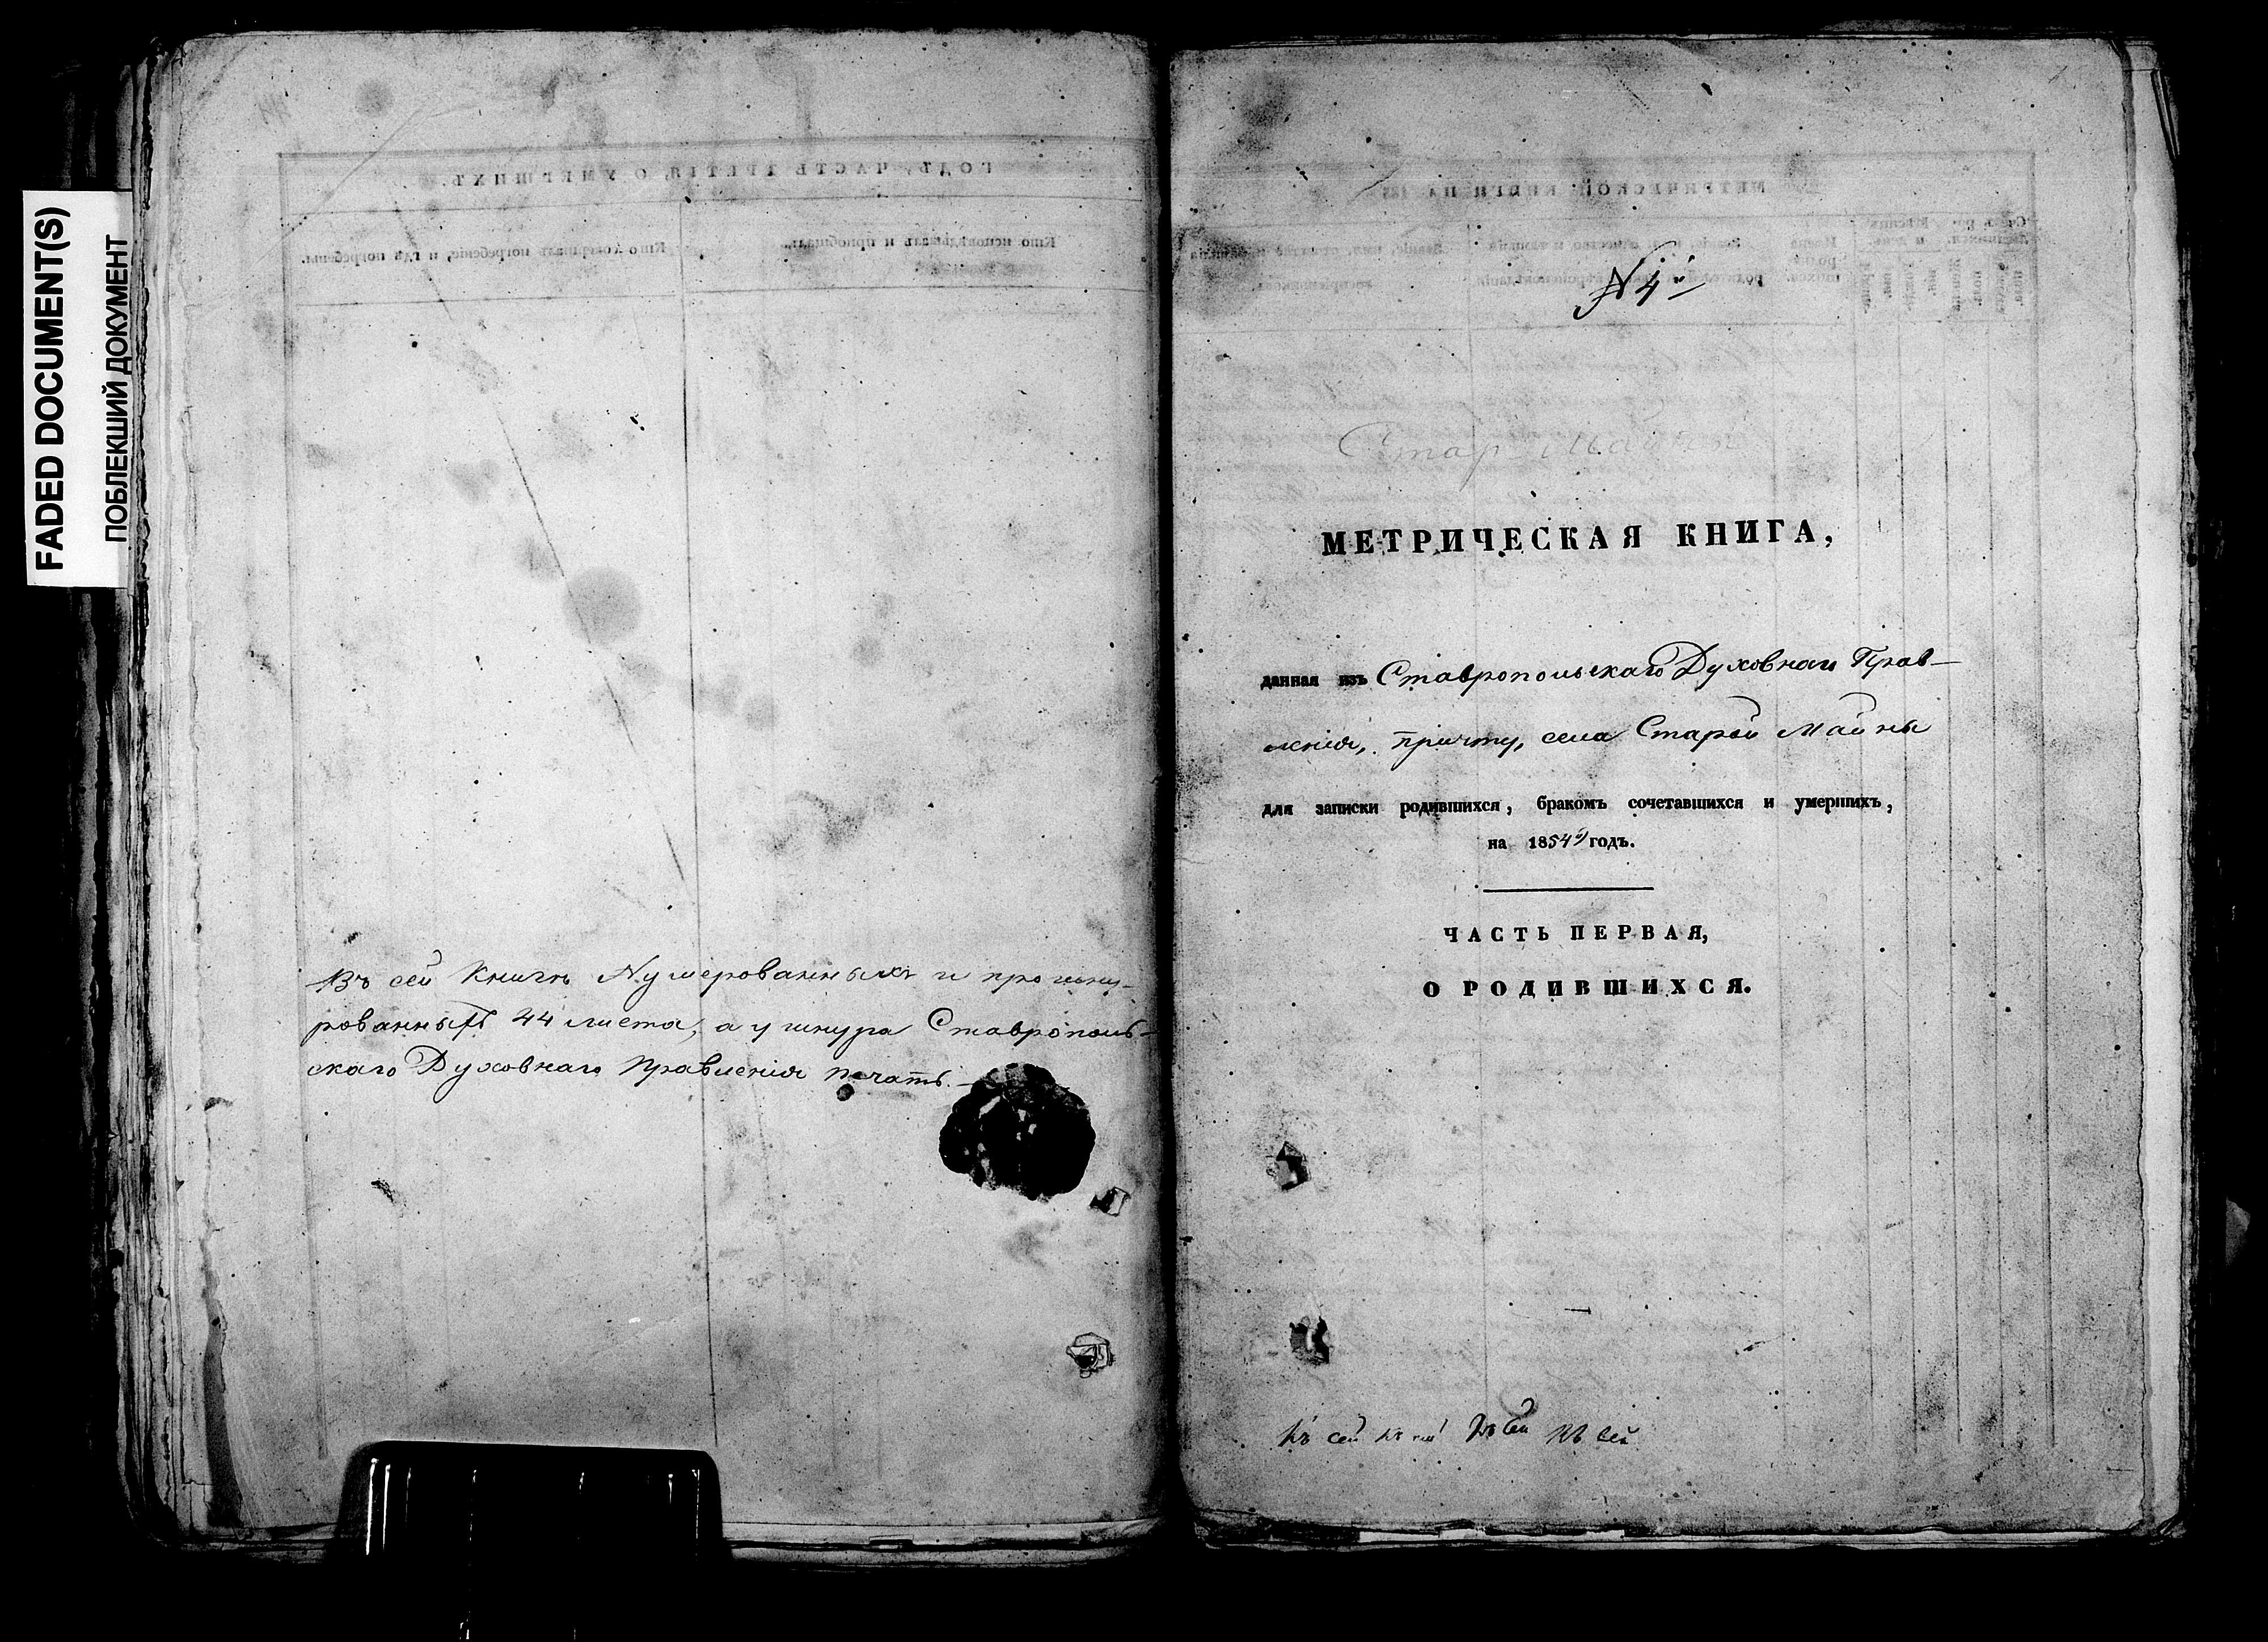 FADED DOCUMENT(S)
ПОБЛЕКШИЙ ДОКУМЕНТ
Въ сей Книгѣ Нумерованныхъ и прошну-
рованныхъ 44 листа, а у шнура Ставрополь-
скаго Духовнаго Правленія печать.
№ 4й
Стар Майны
МЕТРИЧЕСКАЯ КНИГА,
данная изъ Ставропольскаго Духовнаго Прав-
ленія, причту, села Старой Майны
для записки родившихся, бракомъ сочетавшихся и умершихъ,
на 1854й годъ.
ЧАСТЬ ПЕРВАЯ,
О РОДИВШИХСЯ.
Къ сей Къ сей Къ сей Къ сей